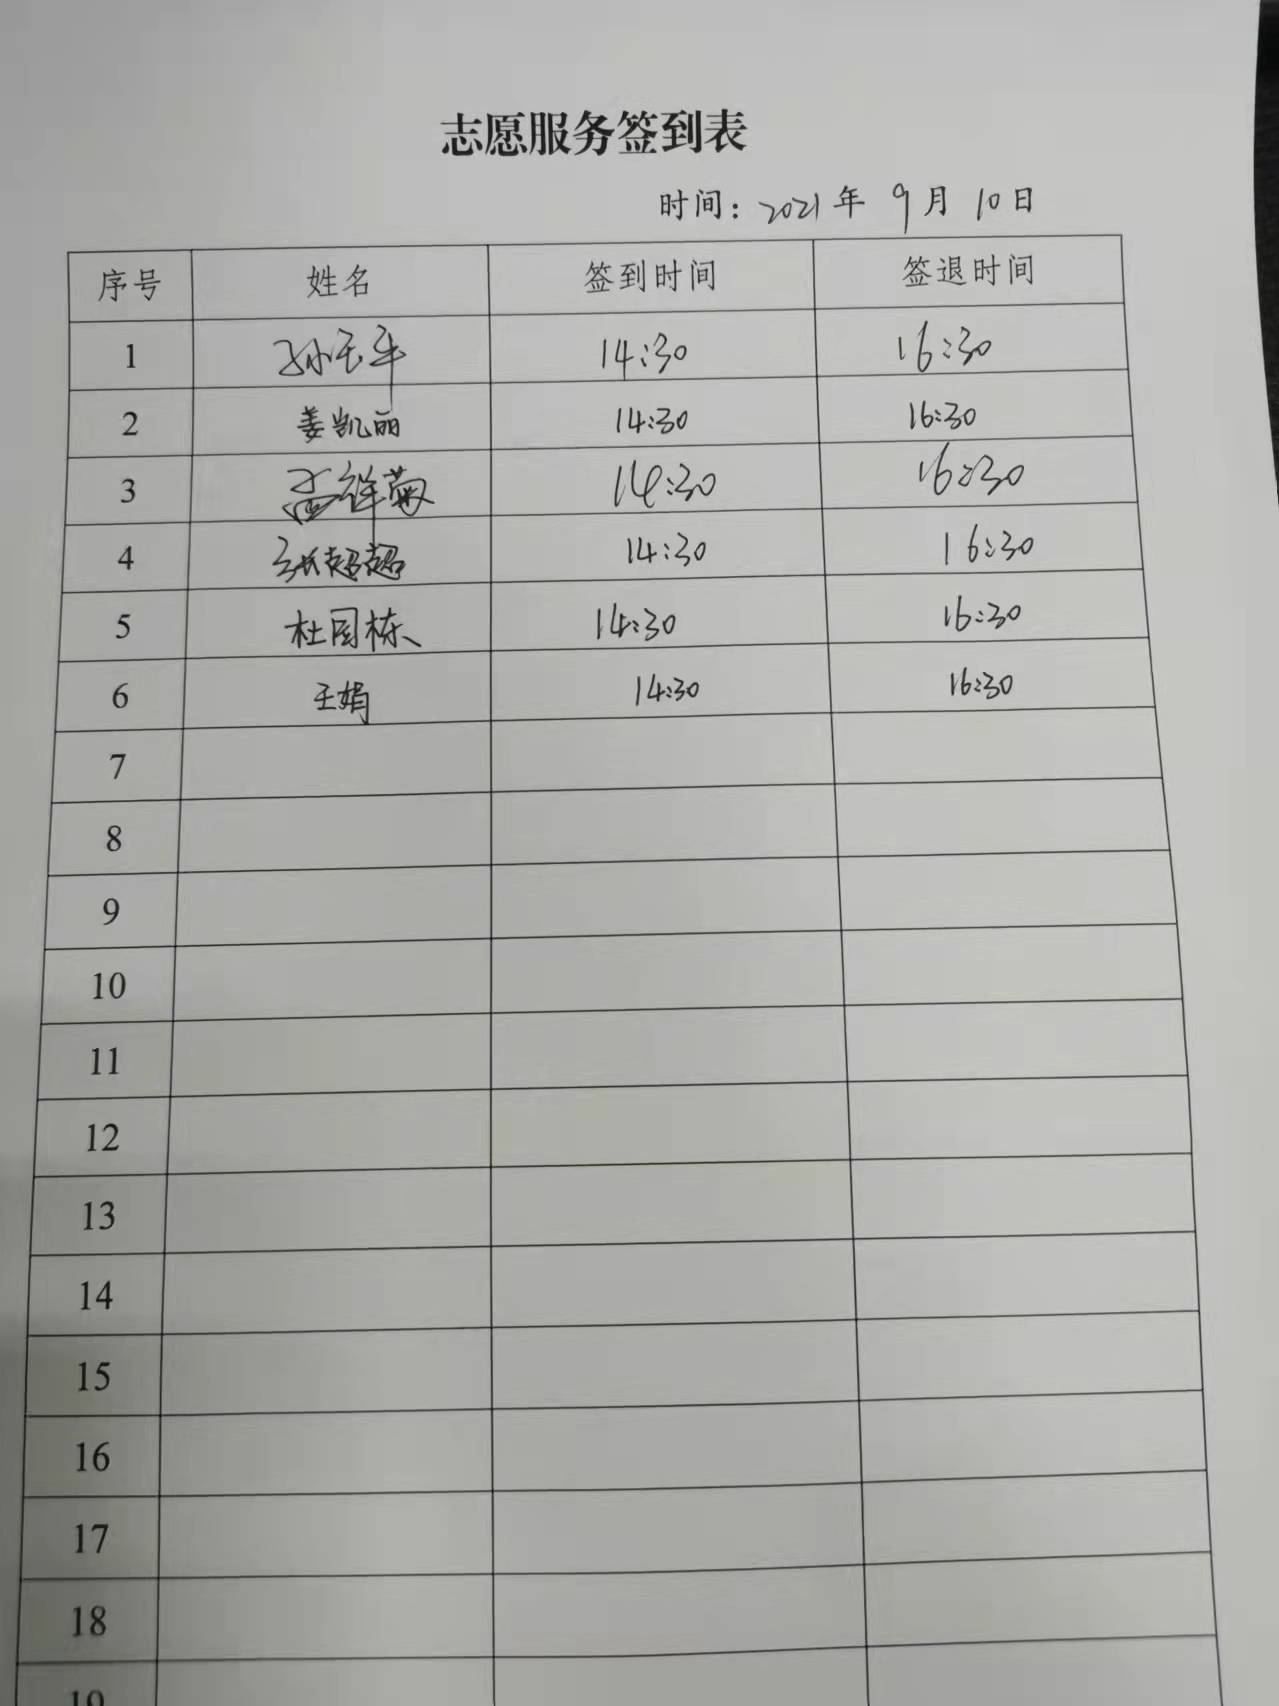 志愿服务签到表
时间：2021年 9月 10日
序号 姓名 签到时间 签退时间
1 孙玉平 14:30 16:30
2 姜凯丽 14:30 16:30
3 孟祥菊 14:30 16:30
4 张超超 14:30 16:30
5 杜国栋 14:30 16:30
6 王娟 14:30 16:30
7
8
9
10
11
12
13
14
15
16
17
18
19